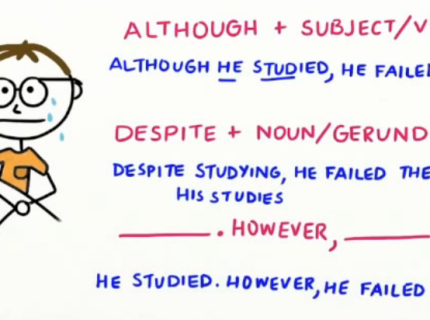 ALTHOUGH + SUBJECT/V
ALTHOUGH HE STUDIED, HE FAILED
DESPITE + NOUN/GERUND
DESPITE STUDYING, HE FAILED THE
HIS STUDIES
________. HOWEVER, ________
HE STUDIED. HOWEVER, HE FAILED